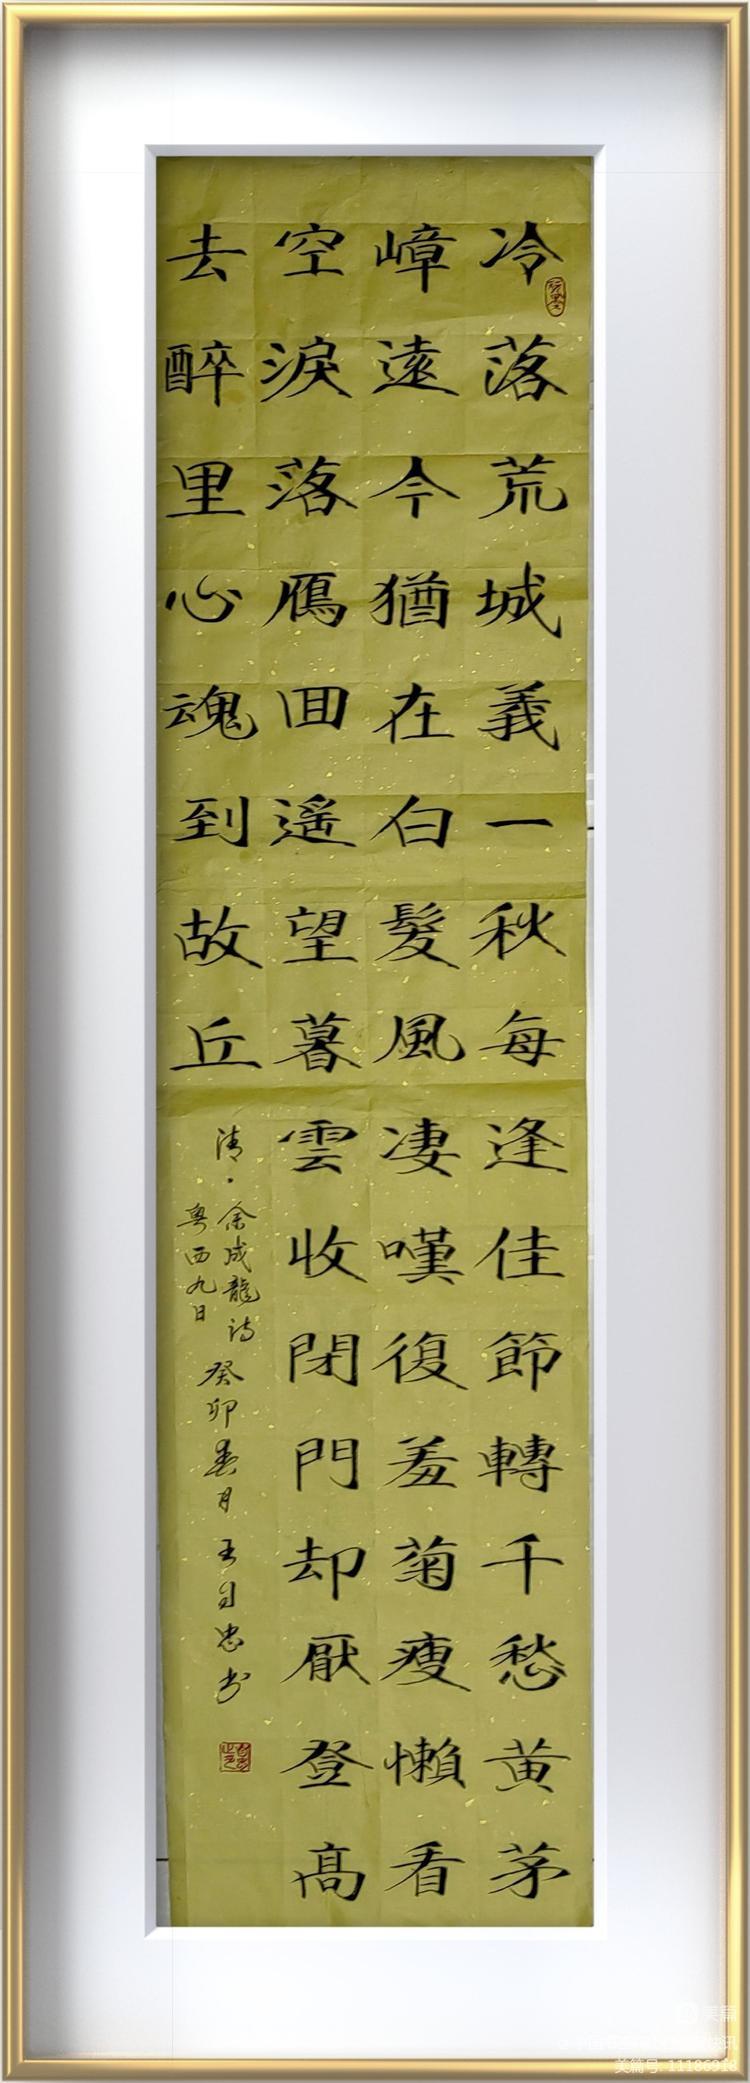 冷落荒城義一秋每逢佳節轉千愁黄茅
嶂遠今猶在白髮風凄嘆復羞菊瘦懶看
空淚落鴈囬遥望暮雲收閉門却厭登高
去醉里心魂到故丘
清·余成龍詩
粤西九日
癸卯春月王自忠书
美篇
美篇号:11186918